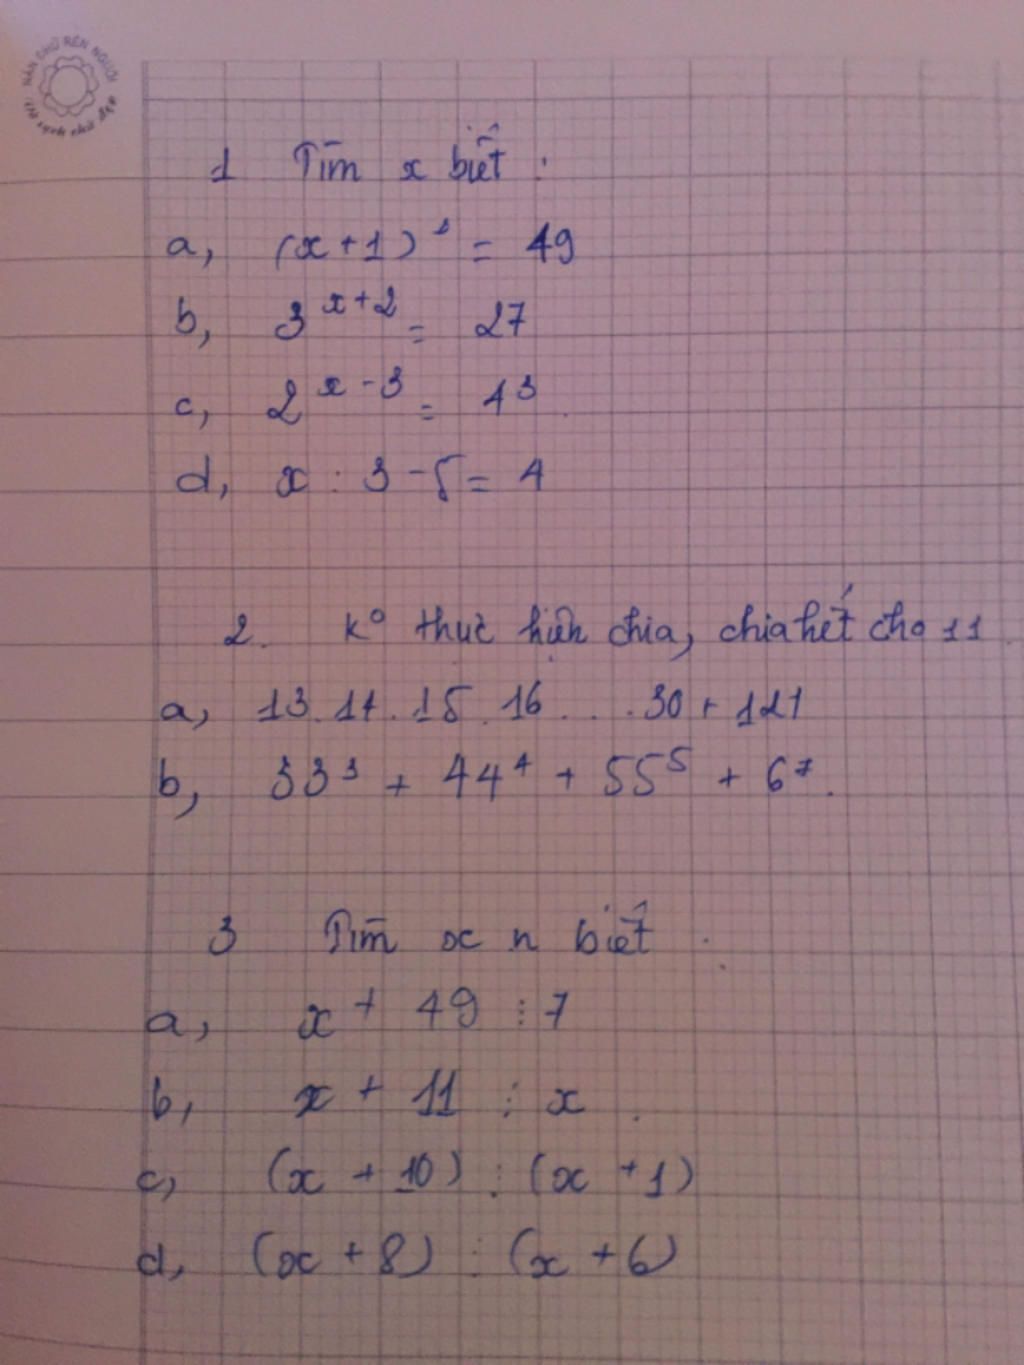 NẮN CHỮ RÈN NGƯỜI
Vở sạch chữ đẹp
1 Tìm x biết :
a, (x+1)² = 49
b, 3^x+2 = 27
c, 2^x-3 = 4³
d, x : 3 - 5 = 4
2. K° thực hiện chia, chia hết cho 11
a, 13.14.15.16...30 + 121
b, 33³ + 44⁴ + 55⁵ + 6⁷.
3 Tìm x n biết.
a, x + 49 ⋮ 7
b, x + 11 ⋮ x.
c, (x + 10) ⋮ (x + 1)
d, (x + 8) ⋮ (x + 6)